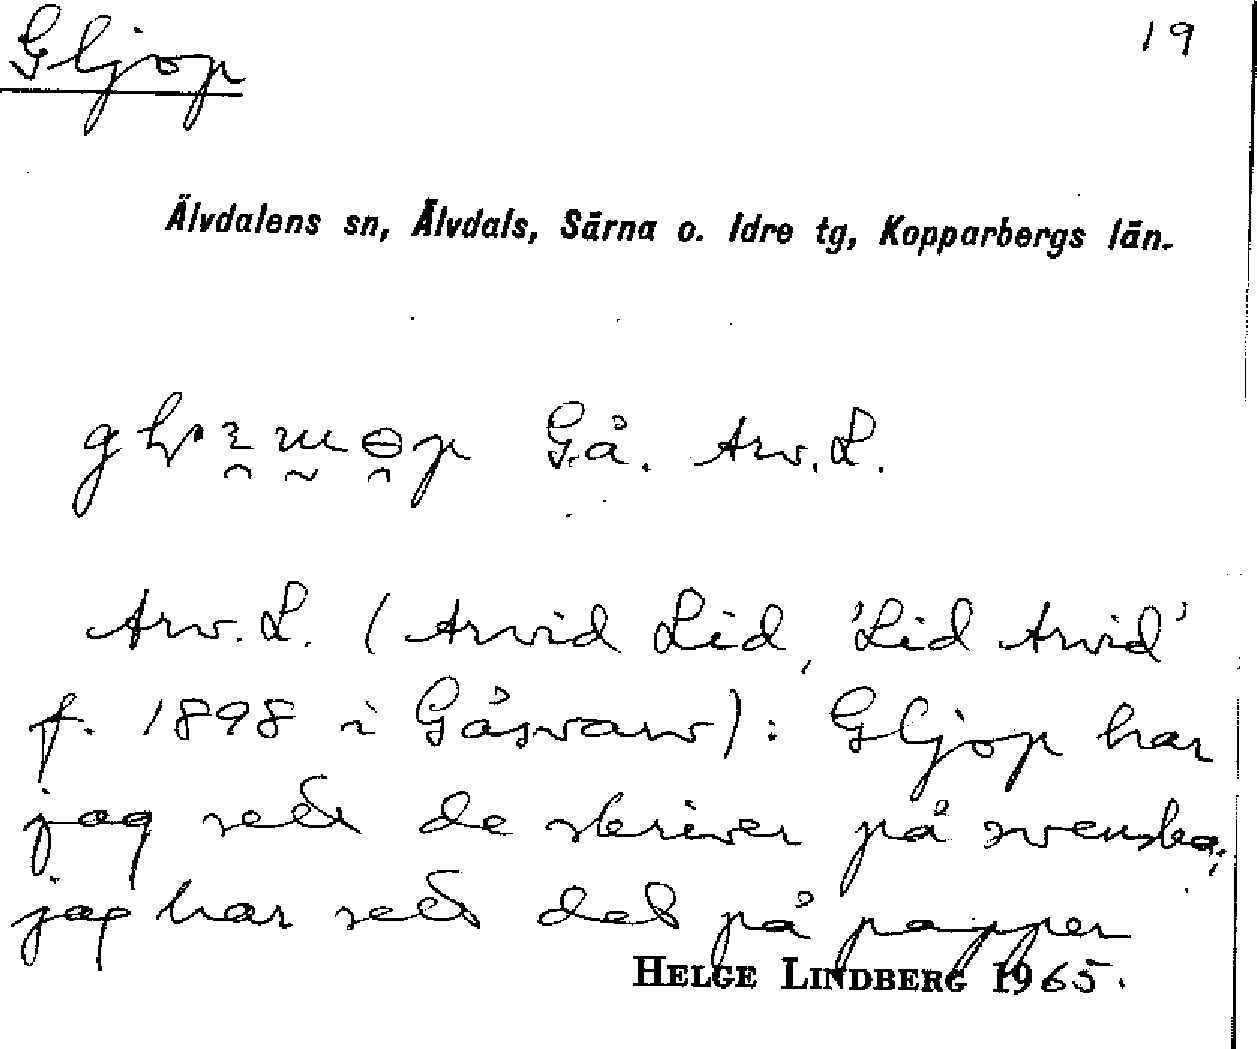 Gljop
19
Älvdalens sn, Älvdals, Särna o. Idre tg, Kopparbergs län.
Gå. Arv. L.
Arv. L. (Arvid Lid, 'Lid Arvid'
f. 1898 i Gåsvarv): Gljop har
jag sett de skriver på svenska;
jag har sett det på papper
HELGE LINDBERG 1965.